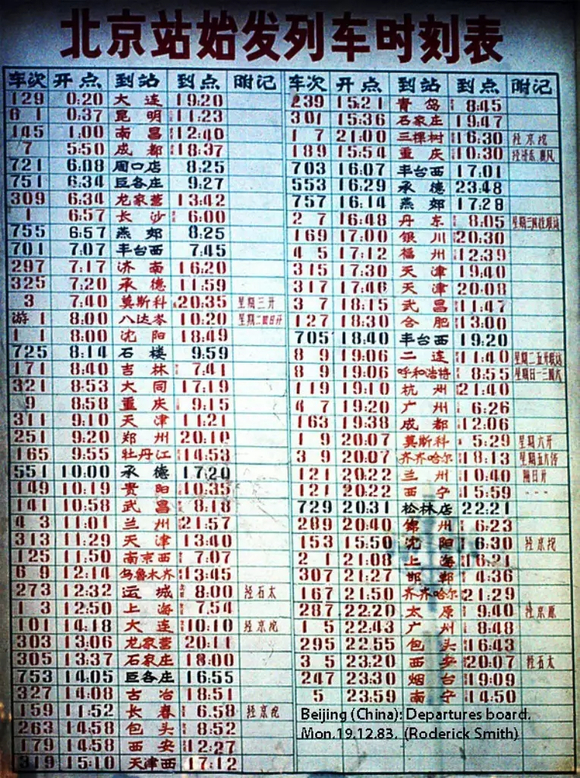 北京站始发列车时刻表
车次 开点 到站 到点 附记
129 0:20 大连 19:20
61 0:37 昆明 11:23
145 1:00 南昌 12:40
7 5:50 成都 18:37
721 6:08 周口店 8:25
751 6:34 巨各庄 9:27
309 6:34 龙家营 13:42
1 6:57 长沙 6:00
755 6:57 燕郊 8:25
701 7:07 丰台西 7:45
297 7:17 济南 16:20
325 7:20 承德 11:59
3 7:40 莫斯科 20:35 星期三开
游1 8:00 八达岭 10:20 星期二四日开
11 8:00 沈阳 18:49
725 8:14 石楼 9:59
171 8:40 吉林 7:41
321 8:53 大同 17:19
9 8:58 重庆 9:15
311 9:10 天津 11:21
251 9:20 郑州 20:10
165 9:55 牡丹江 14:53
551 10:00 承德 17:20
149 10:19 贵阳
141 10:58 武昌 8:18
43 11:01 兰州 21:57
313 11:29 天津 13:40
125 11:50 南京西 7:07
69 12:14 乌鲁木齐 13:45
273 12:32 运城 8:00 经石太
13 12:50 上海 7:54
101 14:18 大连 10:10 经京坨
303 13:06 龙家营 20:11
305 13:37 石家庄 18:00
753 14:05 巨各庄 16:55
327 14:08 古冶 18:51
159 11:52 长春 6:58 经京坨
263 14:58 包头 8:52
179 14:58 西安 12:27
319 15:10 天津西 17:12
车次 开点 到站 到点 附记
239 15:21 青岛 8:45
301 15:36 石家庄 19:47
17 21:00 三棵树 16:30 经京坨
189 15:54 重庆 10:30
703 16:07 丰台西 17:01
553 16:29 承德 23:48
757 16:14 燕郊 17:28
27 16:48 丹东 8:05
169 17:00 银川 20:30
45 17:12 福州 12:39
315 17:30 天津 19:40
317 17:46 天津 20:08
37 18:15 武昌 11:47
127 18:30 合肥 13:00
705 18:40 丰台西 19:20
89 19:06 二连 11:40
89 19:06 呼和浩特 8:55
119 19:10 杭州 21:40
47 19:20 广州 6:26
163 19:38 成都 12:06
19 20:07 莫斯科 5:29 星期六开
39 20:07 齐齐哈尔 18:13
121 20:22 兰州 10:40 隔日开
121 20:22 西宁 15:59
729 20:31 松林店 22:21
289 20:40 锦州 6:23
153 15:50 沈阳 6:30 经京坨
21 21:08 上海 16:21
307 21:27 邯郸 4:36
167 21:50 齐齐哈尔 21:29
287 22:20 太原 9:40 经京原
15 22:43 广州 8:48
295 22:55 包头 16:43
35 23:20 西安 20:07 经石太
247 23:30 烟台 19:09
5 23:59 南宁 14:50
Beijing (China): Departures board.
Mon.19.12.83. (Roderick Smith)